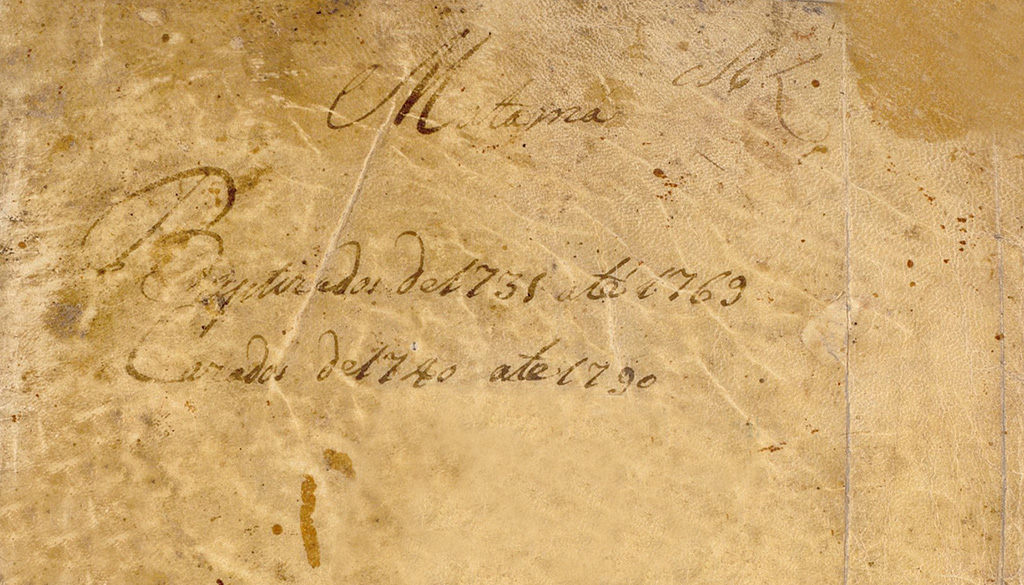 Matama
Baptizados de 1731 até 1769
Cazados de 1740 ate 1790